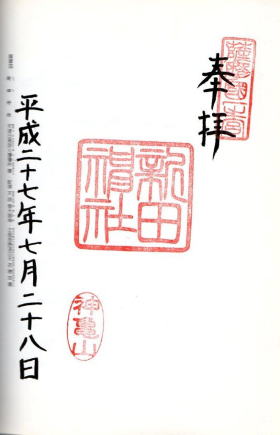 奉拝
薩摩國一宮
新田神社
神亀山
平成二十七年七月二十八日